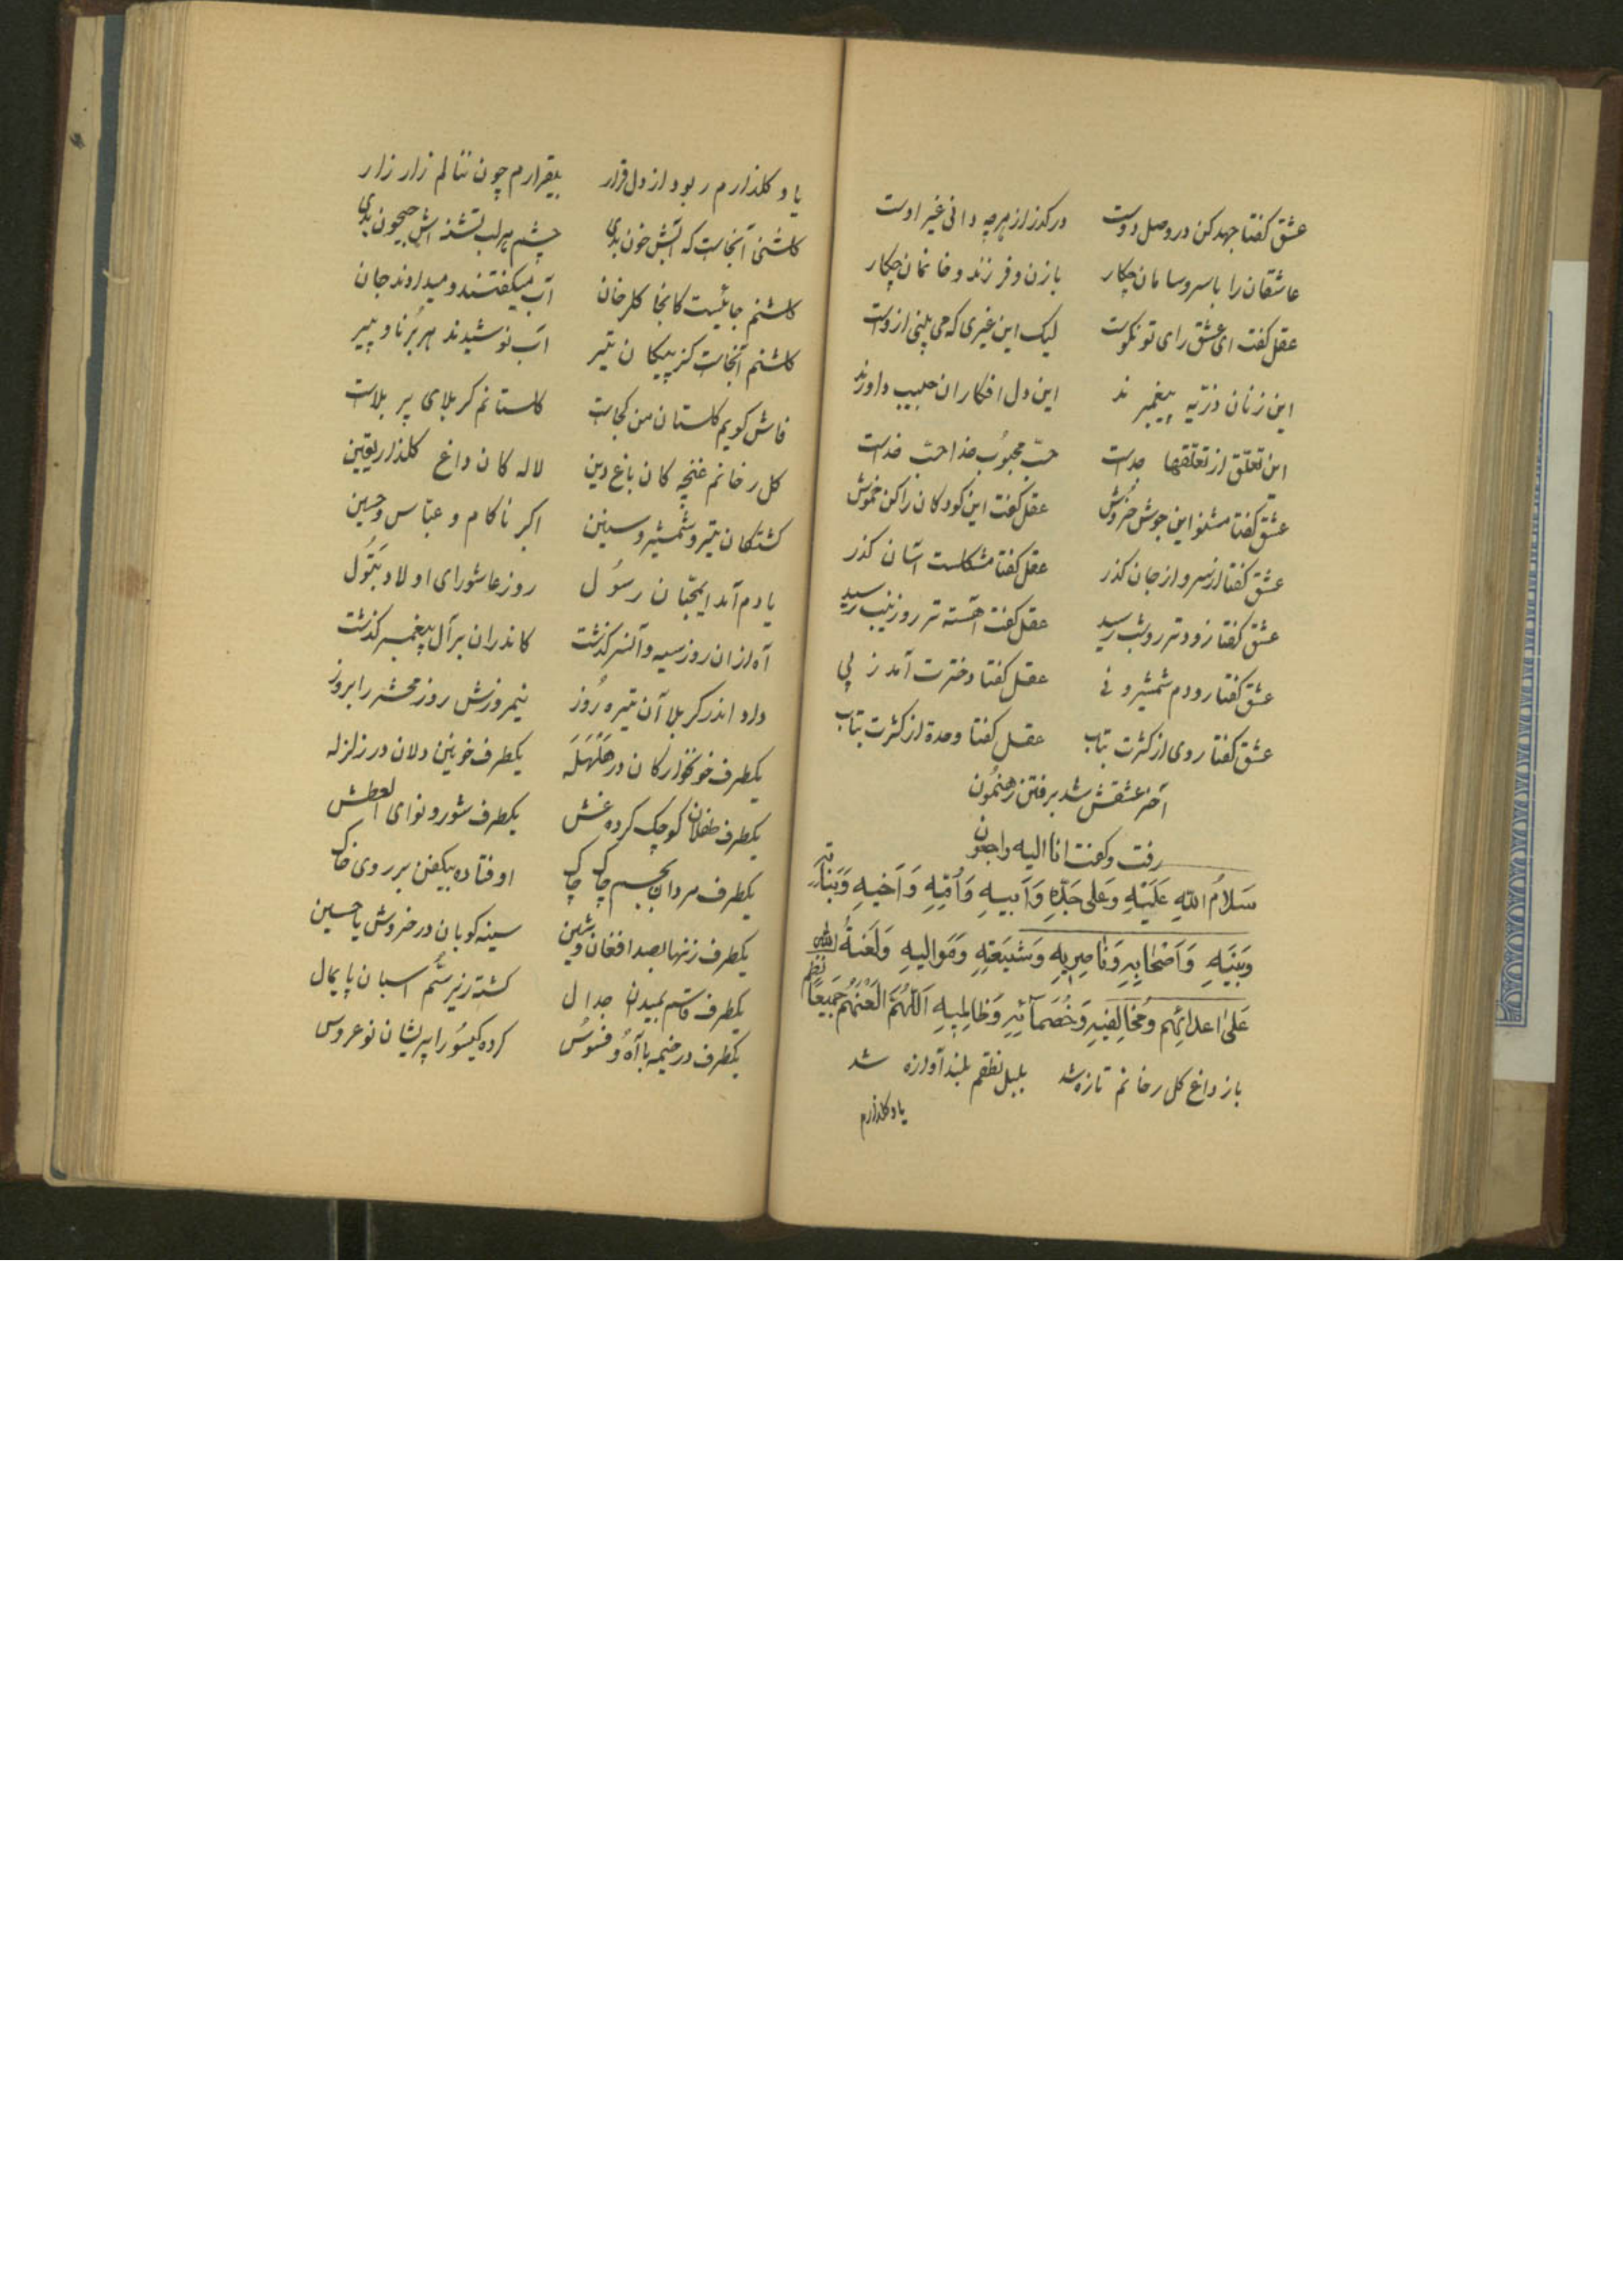 عشق کفتا جهد کن در وصل دوست درکذر از هرچه دانی غیر اوست
عاشقان را با سر و سامان چکار با زن و فرزند و خانمان چکار
عقل کفت ای عشق رای تو نکوست لیک این غیری که می بینی ازوست
این زنان ذریه پیغمبرند این دل افکاران حبیب داورند
این تعلق از تعلقها جداست حبّ محبوب خدا حبّ خداست
عشق کفتا مشنو این جوش خروش عقل کفت این کودکان را کن خموش
عشق کفتا از سر و از جان کذر عقل کفتا مشکلست آسان کذر
عشق کفتا زودتر رو شب رسید عقل کفت آهسته تر رو زینب رسید
عشق کفتا رو دم شمشیر و نی عقل کفتا دخترت آمد ز پی
عشق کفتا روی از کثرت بتاب عقل کفتا وحدة از کثرت بتاب
آخر عشقش شد برفتن رهنمون
رفت و کفت انا الیه راجعون
سَلامُ اللّهِ عَلَیْهِ وَعَلی جَدِّهِ وَاَبیهِ وَاُمِّهِ وَاَخیهِ وَبَناتِه
وَبَنیهِ وَاَصْحابِهِ وَناصِریهِ وَشیعَتِهِ وَمَوالیهِ وَلَعْنَةُ اللّهِ
عَلیٰ اعدائِهِم وَمُخالِفیهِ وَخُصَمآئِهِ وَظالِمیهِ اَللّهُمَّ الْعَنْهُمْ جَمیعًا نظم
باز داغ کل رخانم تازه شد بلبل نطقم بلند آوازه شد
یاد کلذارم
یاد کلذارم ربود از دل قرار بیقرارم چون ننالم زار زار
کلشنی آنجاست که آبش خون بدی چشم هر لب تشنه اش جیحون بدی
کلشنم جائیست کانجا کلرخان آب میکفتند و میدادند جان
کلشنم آنجاست کز پیکان تیر آب نوشیدند هر بُرنا و پیر
فاش کویم کلستان من کجاست کلستانم کربلای پر بلاست
کل رخانم غنچه کان باغ دین لاله کان داغ کلذار یقین
کشتکان تیر و شمشیر و سنین اکبر ناکام و عبّاس و حسین
یادم آمد ایمحبّان رسُول روز عاشورای اولاد بَتُول
آه از ان روز سیه وآنسرکذشت کاندران بر آل پیغمبر کذشت
داد اندر کربلا آن تیره رُوز نیمروزش روز محشر را بروز
یکطرف خونخوارکان در هَلْهَلَه یکطرف خونین دلان در زلزله
یکطرف طفلان کوچک کرده غش یکطرف شور و نوای العطش
یکطرف مردان بجسم چاک چاک اوفتاده بیکفن بر روی خاک
یکطرف زنها بصد افغان و شین سینه کوبان در خروش یا حسین
یکطرف قاسم بمیدان جدال کشته زیر سُم اسبان پایمال
یکطرف در خیمه با آه و فسوُس کرده کیسُو را پریشان نوعروس